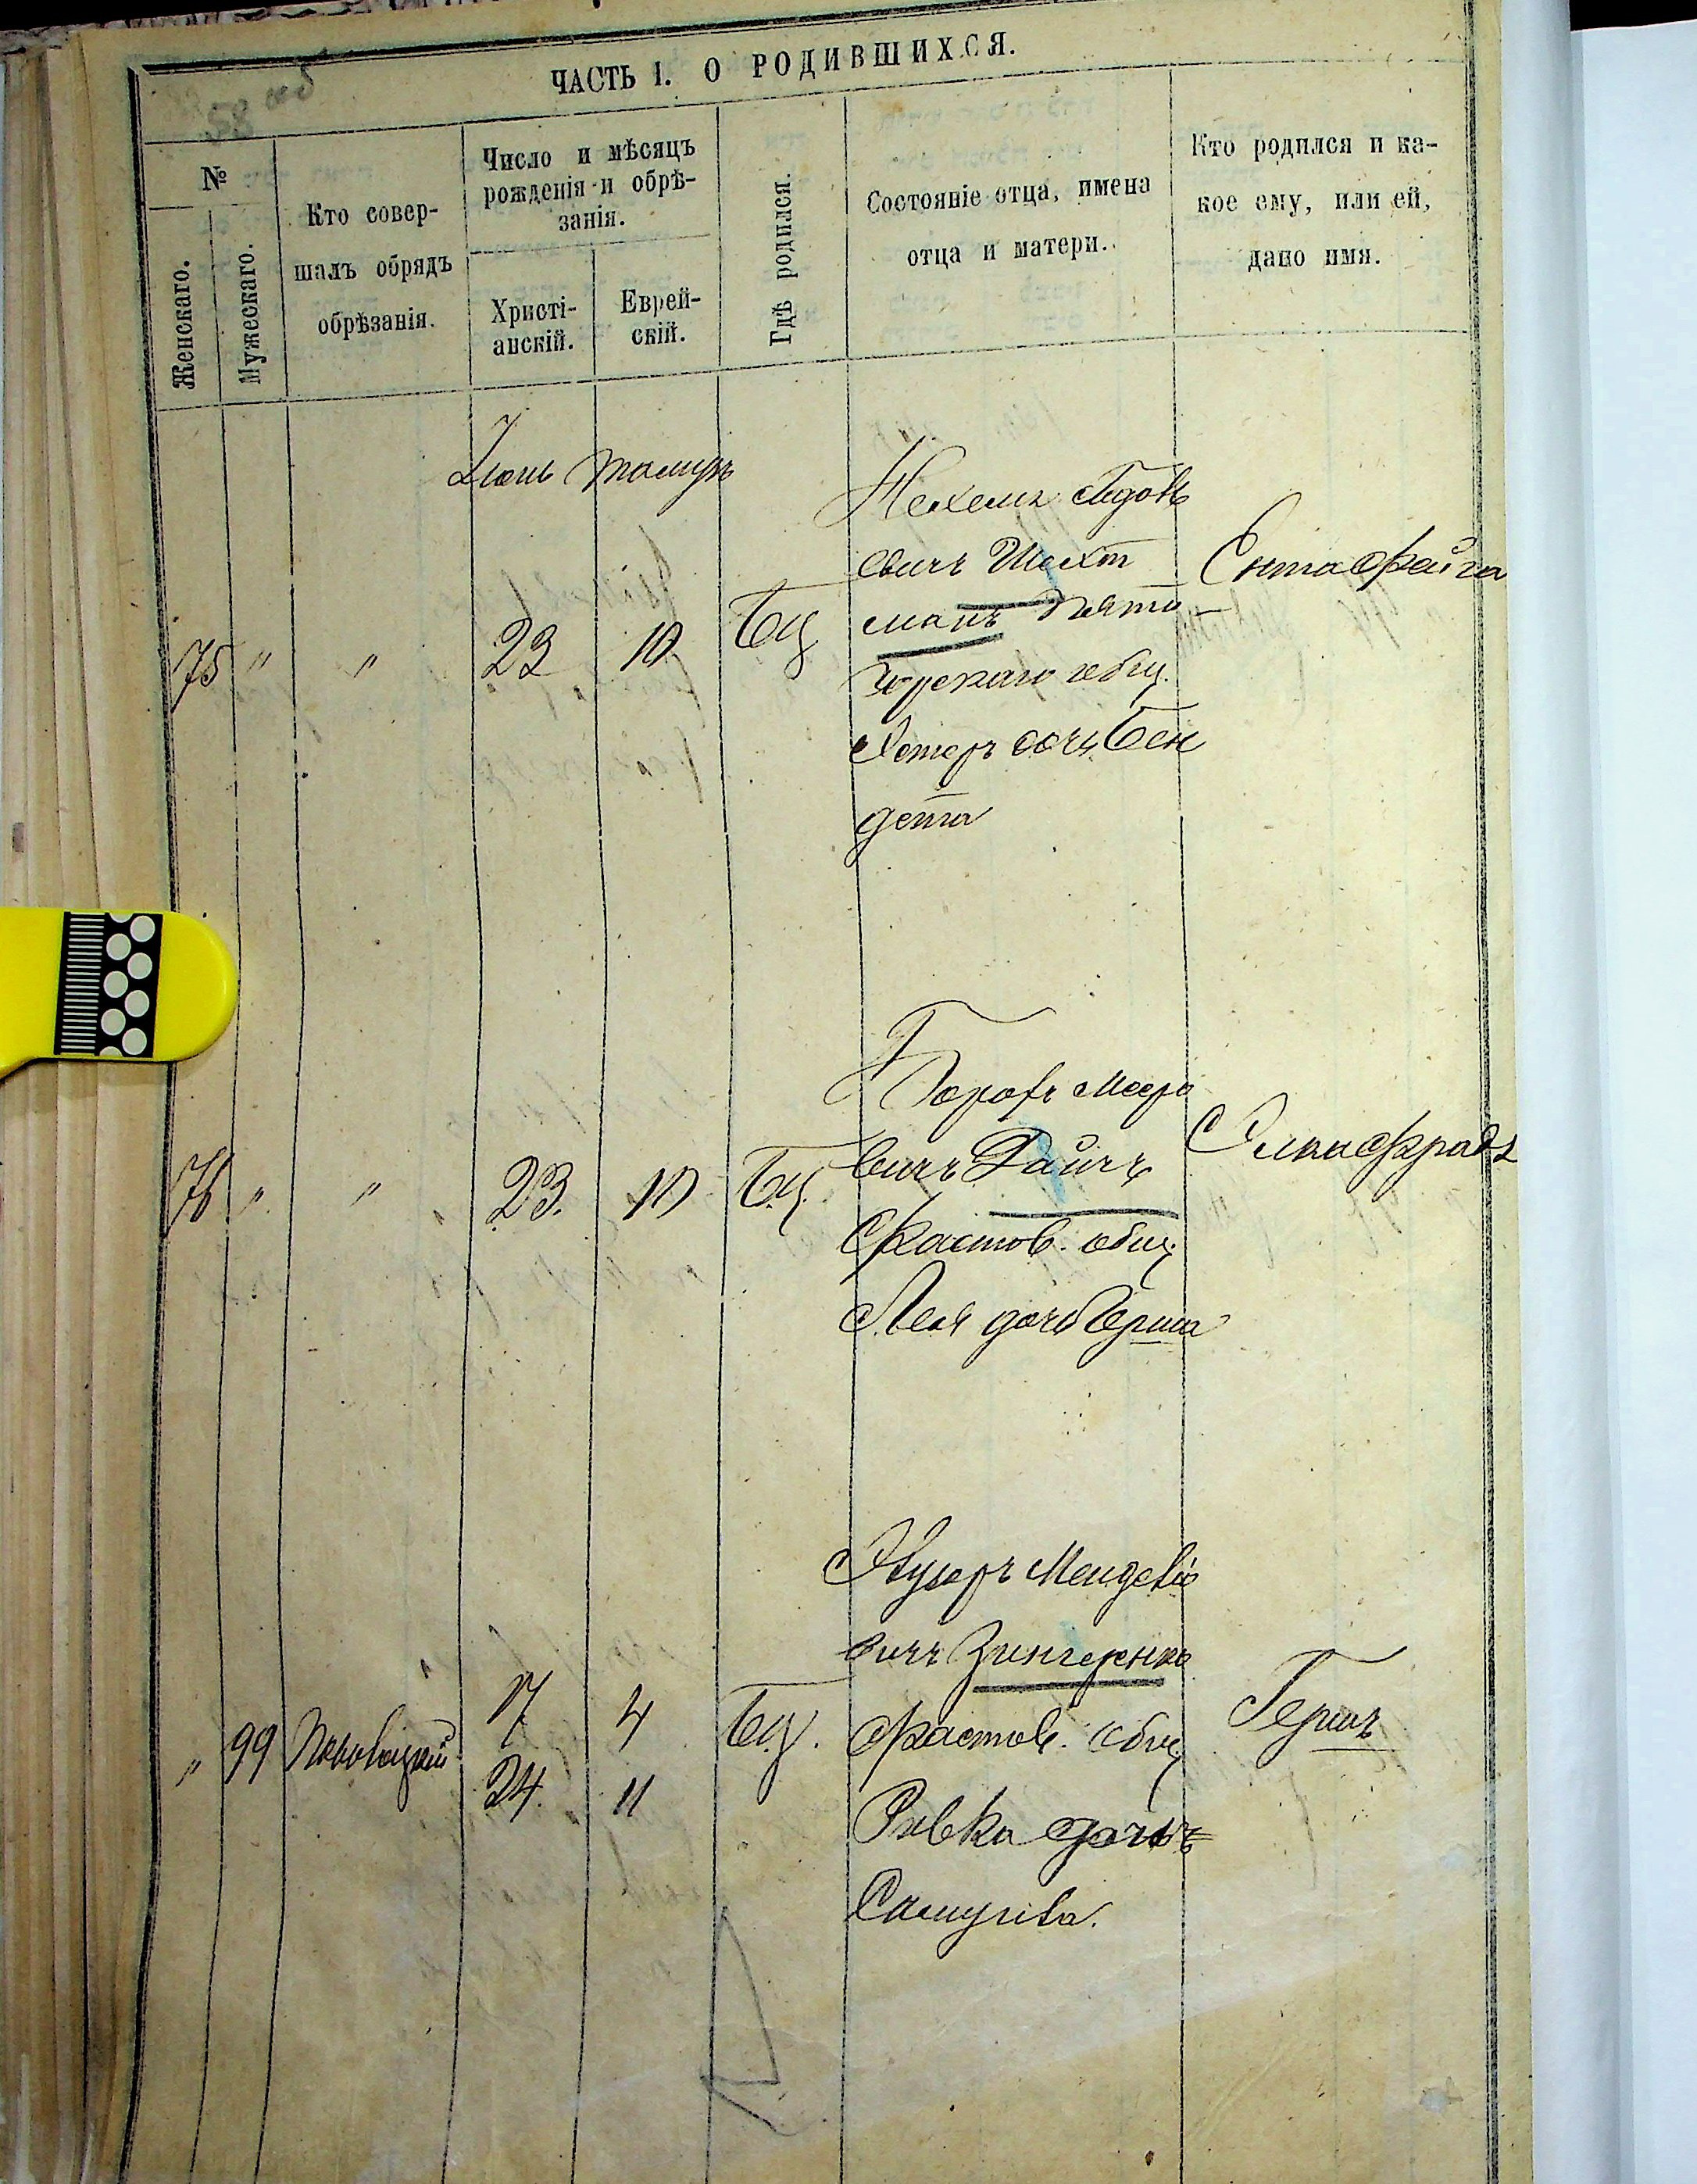 58 об
ЧАСТЬ I. О РОДИВШИХСЯ.
№
Женскаго.
Мужескаго.
Кто совер-
шалъ обрядъ
обрѣзанія.
Число и мѣсяцъ
рожденія и обрѣ-
занія.
Христі-
анскій.
Еврей-
скій.
Гдѣ родился.
Состояніе отца, имена
отца и матери.
Кто родился и ка-
кое ему, или ей,
дано имя.
Іюнь Тамузъ
75 " " 23 10 Бц
вичъ Шехт
манъ Пяти
горскаго общ.
Естеръ дочь Бен
дета
Ента Файга
76 " " 23. 10 Бц.
Борохъ Мееро
вичъ Райчъ
Фастов. общ.
Лея дочь Герша
" 99 17 4 Бц.
24. 11
вичъ Зингеренко
Фастов. общ
Ривка дочь
Самуила.
Гершъ